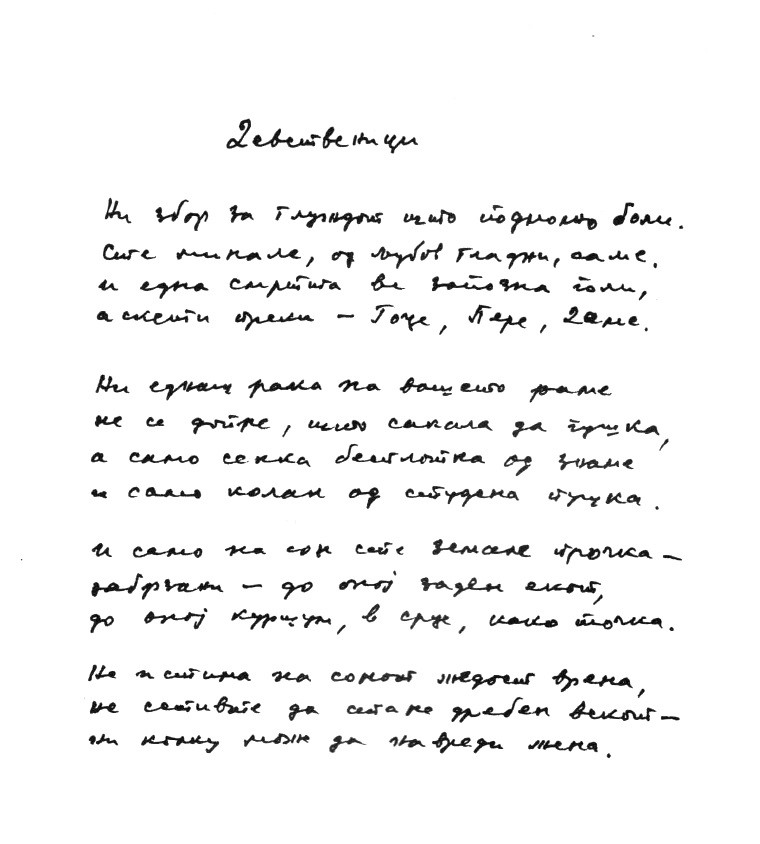 Девственици
Ни збор за глуждот што подмолно боли.
Сте минале, од љубов гладни, саме,
и една смртта ве запозна голи,
аскети преки — Гоце, Пере, Даме.
Ни еднаш рака на вашето раме
не се допре, што сакала да гушка,
а само сенка бестлотка од знаме
и само колан од студена пушка.
И само на сон сте земале прочка —
забрзани — до оној заден екот,
до оној куршум, в срце, како точка.
Не пстина на сонот медост врена,
не сетивте да стане дребен векот —
ни колку мож да навреди жена.